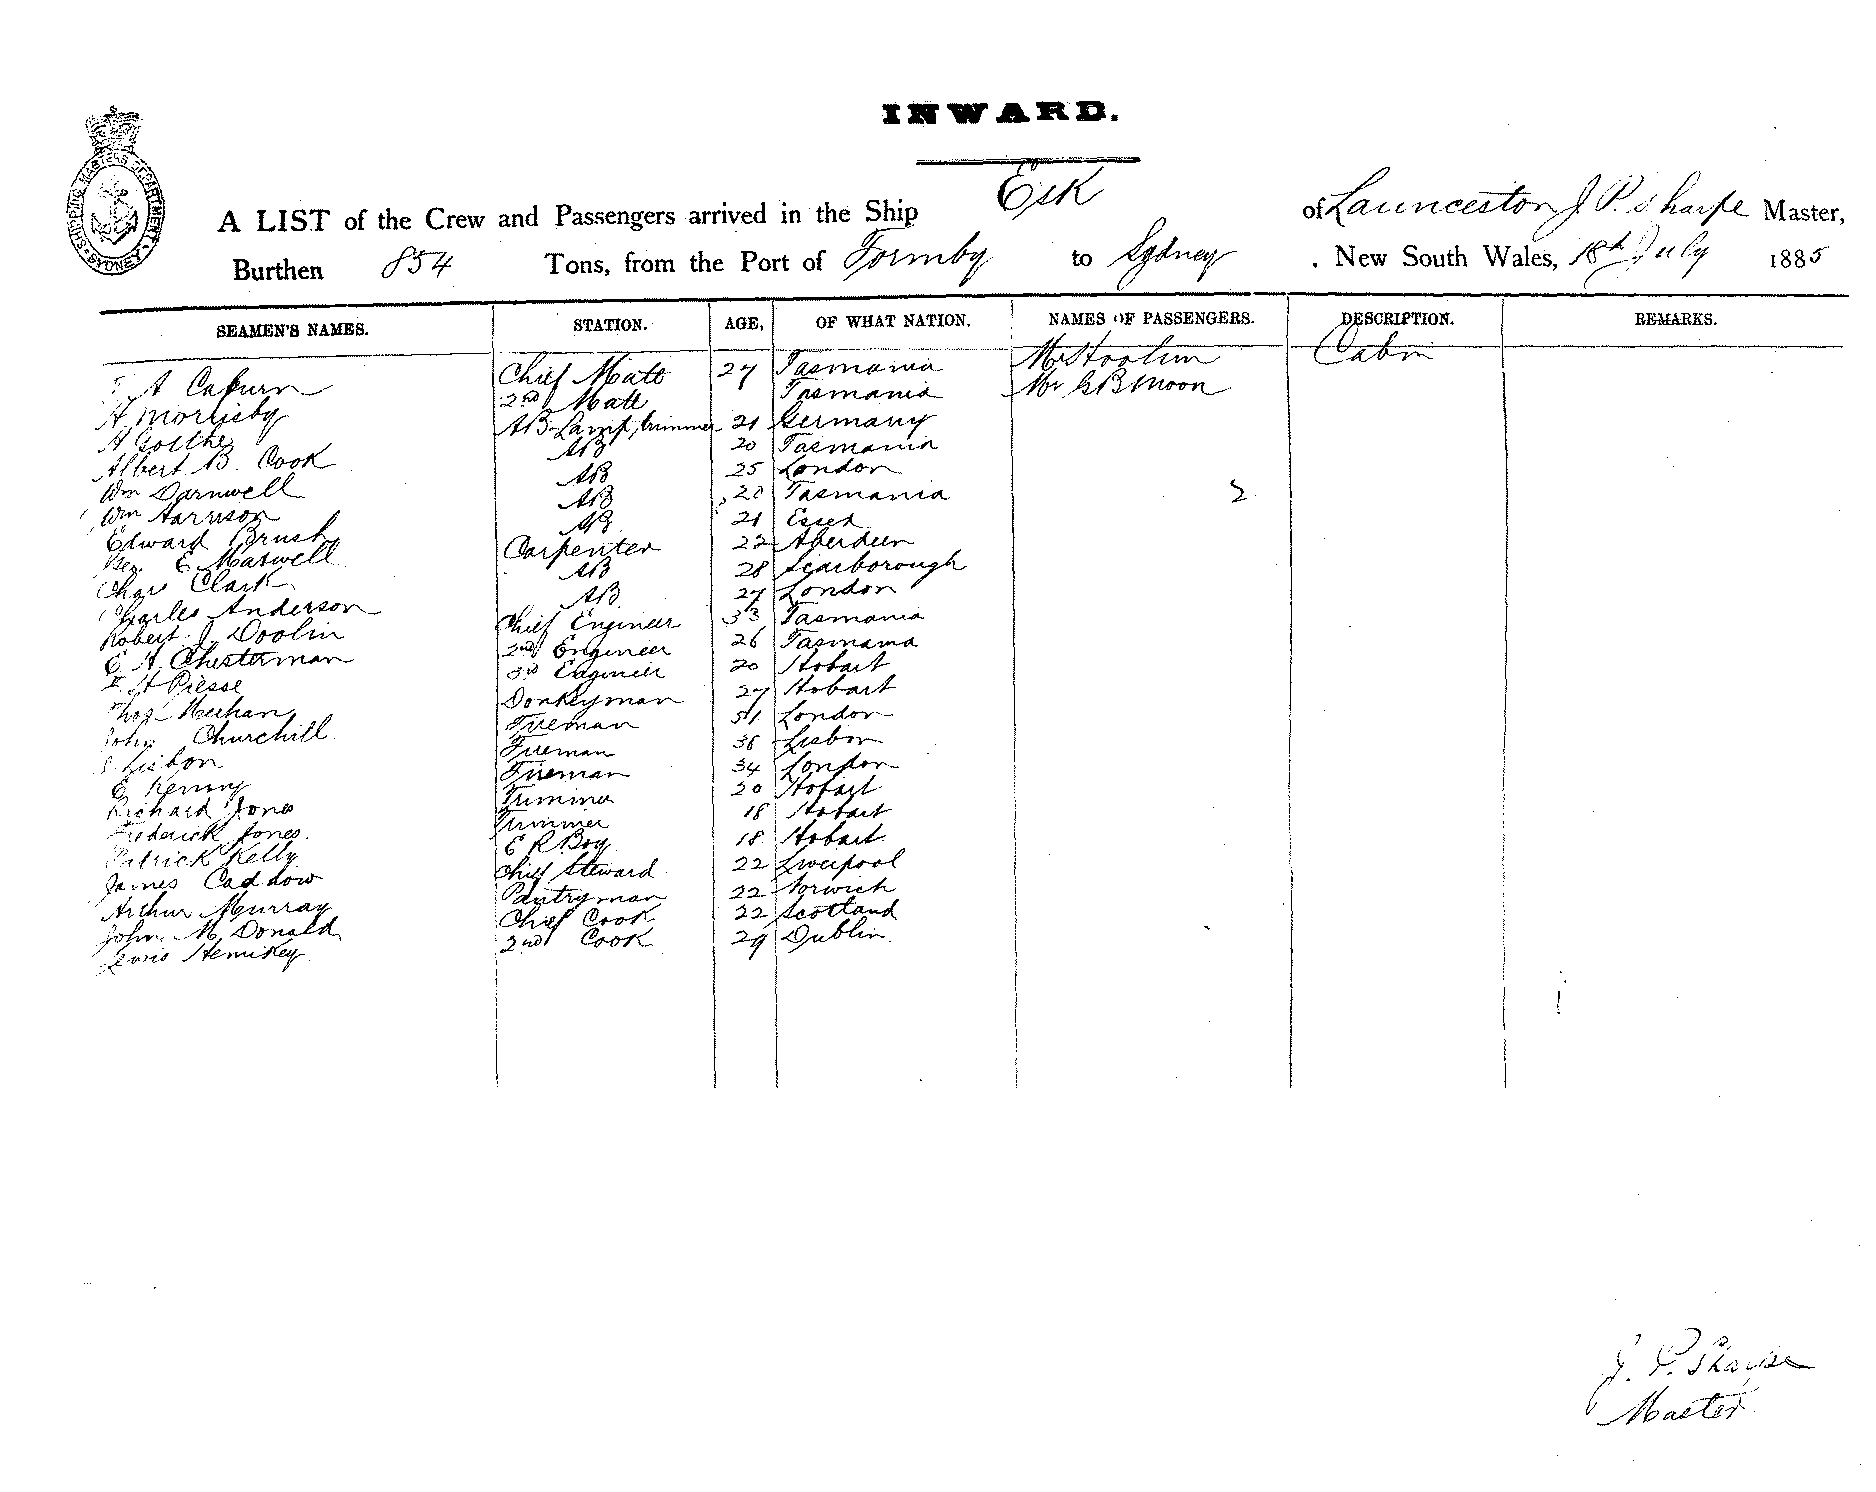 INWARD.
SHIPPING MASTERS DEPARTMENT SYDNEY
A LIST of the Crew and Passengers arrived in the Ship Esk of Launceston J. P. Sharpe Master,
Burthen 854 Tons, from the Port of Formby to Sydney. New South Wales, 18th July 1885
SEAMEN'S NAMES. STATION. AGE, OF WHAT NATION. NAMES OF PASSENGERS. DESCRIPTION. REMARKS.
A Chief Mate 27 Tasmania Mr Cabin
A Morrisby 2nd Mate Tasmania Mr G B Moon
A AB Lamp trimmer 21 Germany
Albert B. Cook AB 20 Tasmania
Wm Darnwell AB 25 London
Wm Harrison AB 20 Tasmania 2
Edward Brush AB 21 Essex
E Maxwell Carpenter 22 Aberdeen
Chas Clark AB 28 Scarborough
Charles Anderson AB 27 London
Robert J. Doolin Chief Engineer 33 Tasmania
E A Chesterman 2nd Engineer 26 Tasmania
H Piesse 3rd Engineer 20 Hobart
Thos Meehan Donkeyman 27 Hobart
John Churchill Fireman 51 London
Lisbon Fireman 36 Lisbon
E Kenny Fireman 34 London
Richard Jones Trimmer 20 Hobart
Frederick Jones. Trimmer 18 Hobart
Patrick Kelly E R Boy 18 Hobart
James Caddow Chief Steward 22 Liverpool
Arthur Murray Pantryman 22 Norwich
John McDonald Chief Cook 22 Scotland
Lewis 2nd Cook 29 Dublin
J. P. Sharpe
Master